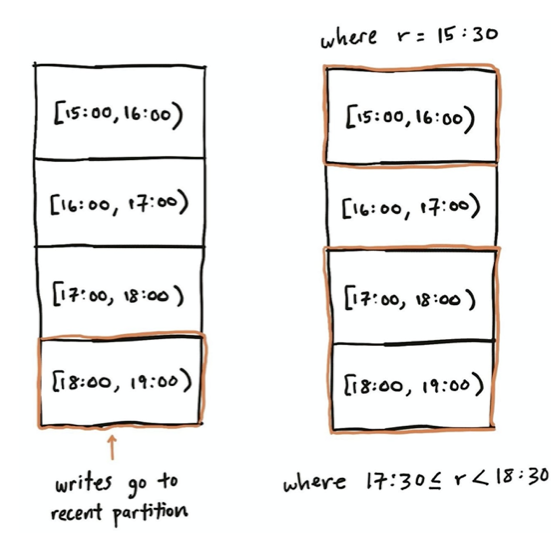 [15:00, 16:00)
[16:00, 17:00)
[17:00, 18:00)
[18:00, 19:00)
writes go to
recent partition
where r = 15:30
[15:00, 16:00)
[16:00, 17:00)
[17:00, 18:00)
[18:00, 19:00)
where 17:30 ≤ r < 18:30